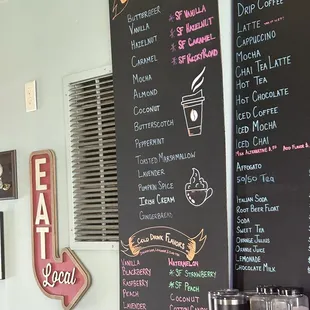 EAT
Local
Butterbeer
Vanilla
Hazelnut
Caramel
Mocha
Almond
Coconut
Butterscotch
Peppermint
Toasted Marshmallow
Lavender
Pumpkin Spice
Irish Cream
Gingerbread
* SF Vanilla
* SF Hazelnut
* SF Caramel
* SF Rocky Road
Cold Drink Flavors
Vanilla
Blackberry
Raspberry
Peach
Lavender
Watermelon
* SF Strawberry
* SF Peach
Coconut
Drip Coffee
Latte
Cappuccino
Mocha
Chai Tea Latte
Hot Tea
Hot Chocolate
Iced Coffee
Iced Mocha
Iced Chai
Affogato
50/50 Tea
Italian Soda
Root Beer Float
Soda
Sweet Tea
Orange Julius
Orange Juice
Lemonade
Chocolate Milk